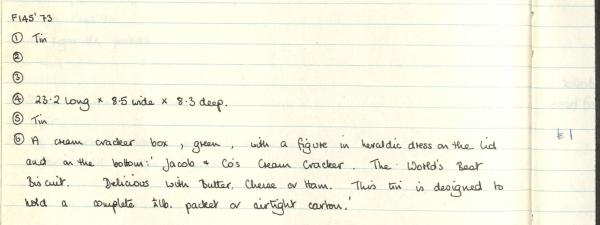 F145'73
① Tin
②
③
④ 23.2 long × 8.5 wide × 8.3 deep.
⑤ Tin
⑥ A cream cracker box, green, with a figure in heraldic dress on the lid
and on the bottom:' Jacob & Co's Cream Cracker. The World's Best
Biscuit. Delicious with Butter, Cheese or Ham. This tin is designed to
hold a complete ½lb. packet or airtight carton.'
£1